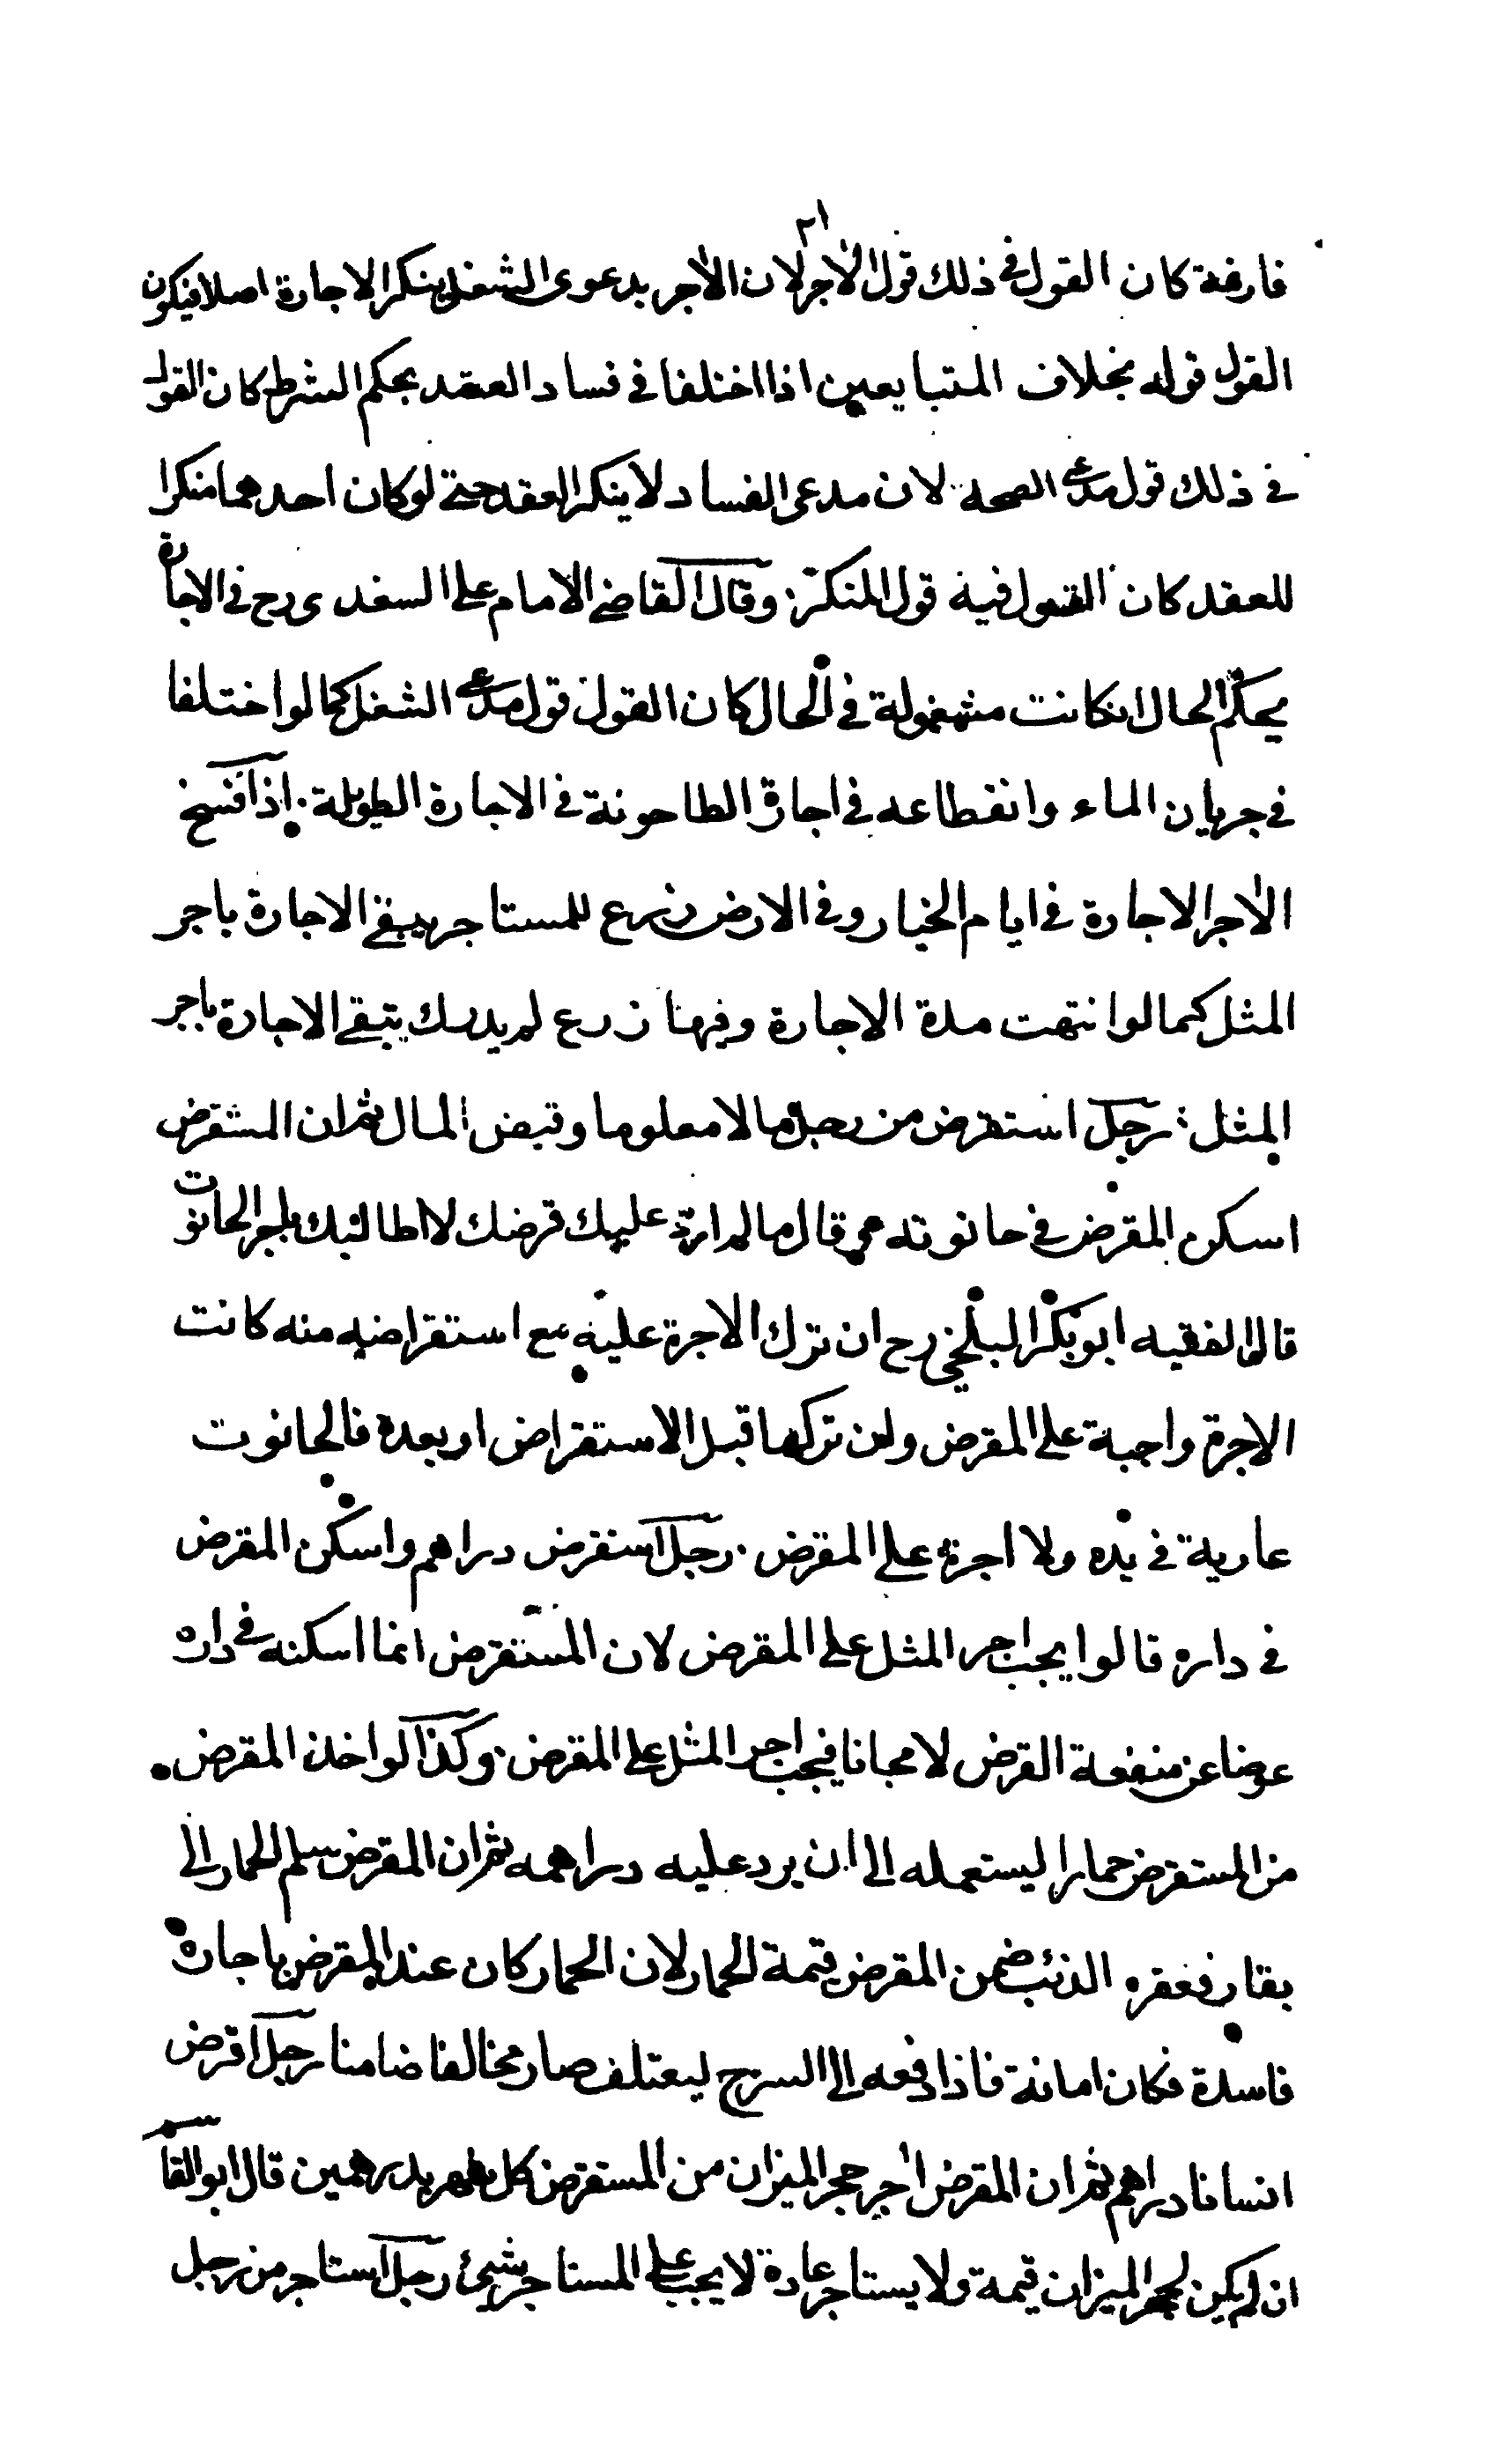 ٢١
فارغة كان القول في ذلك قول الآجر لان الآجر بدعوى الشغل ينكر الاجارة اصلا فيكون
القول قوله بخلاف المتبايعين اذا اختلفا في فساد العقد بحكم الشرط كان القول
في ذلك قول مدعي الصحة لان مدعى الفساد لا ينكر العقد حتى لو كان احدهما منكرا
للعقد كان القول فيه قول المنكر وقال القاضي الامام على السغدى رح في الاجارة
يحكم الحال ان كانت مشغولة في الحال كان القول قول مدعي الشغل كما لو اختلفا
في جريان الماء وانقطاعه في اجارة الطاحونة في الاجارة الطويلة اذا فسخ
الآجر الاجارة في ايام الخيار وفى الارض زرع للمستاجر يبقى الاجارة باجر
المثل كما لو انتهت مدة الاجارة وفيها زرع لم يدرك يتبقى الاجارة باجر
المثل رجل استقرض من رجل مالا معلوما وقبض المال ثم ان المستقرض
اسكن المقرض في حانوته قال ما لم ارد عليك قرضك لا اطالبك باجر الحانوت
قال الفقيه ابو بكر البلخي رح ان ترك الاجرة عليه مع استقراضه منه كانت
الاجرة واجبة على المقرض وان تركها قبل الاستقراض او بعده فالحانوت
عارية في يده ولا اجرة على المقرض رجل استقرض دراهم واسكن المقرض
في داره قالوا يجب اجر المثل على المقرض لان المستقرض انما اسكنه في داره
عوضا عن منفعة القرض لا مجانا فيجب اجر المثل على المقرض وكذا لو اخذ المقرض
من المستقرض حمارا ليستعمله الى ان يرد عليه دراهمه ثم ان المقرض سلم الحمار الى
بقار فعقره الذئب ضمن المقرض قيمة الحمار لان الحمار كان عند المقرض باجارة
فاسدة فكان امانة فاذا دفعه الى السرح ليعتلف صار مخالفا ضامنا رجل اقرض
انسانا دراهم ثم ان المقرض آجر حجر الميزان من المستقرض كل شهر بدرهمين قال ابو القاسم
ان لم يكن لحجر الميزان قيمة ولا يستاجر عادة لا يجب على المستاجر شئ رجل استاجر من رجل